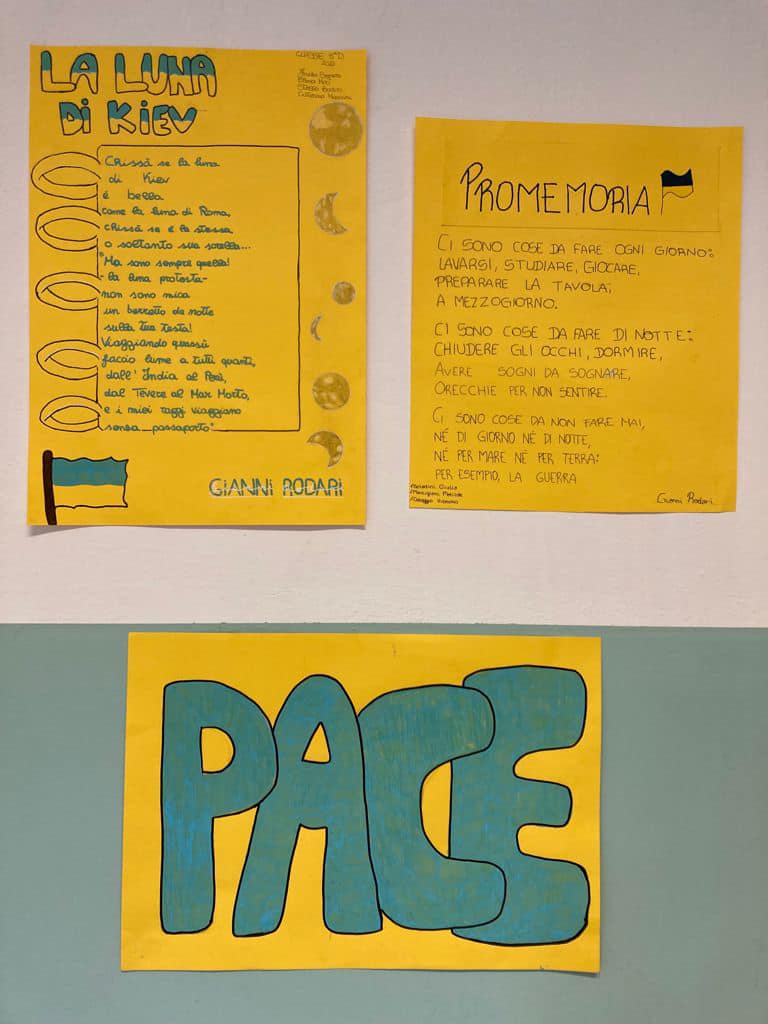 LA LUNA
DI KIEV
CLASSE 5°D
Chissà se la luna
di Kiev
è bella
come la luna di Roma,
chissà se è la stessa
o soltanto sua sorella...
"Ma sono sempre quella!
-la luna protesta-
non sono mica
un berretto da notte
sulla tua testa!
Viaggiando quassù
faccio lume a tutti quanti,
dall'India al Perù,
dal Tevere al Mar Morto,
e i miei raggi viaggiano
senza passaporto".
GIANNI RODARI
PROMEMORIA
CI SONO COSE DA FARE OGNI GIORNO:
LAVARSI, STUDIARE, GIOCARE,
PREPARARE LA TAVOLA,
A MEZZOGIORNO.
CI SONO COSE DA FARE DI NOTTE:
CHIUDERE GLI OCCHI, DORMIRE,
AVERE SOGNI DA SOGNARE,
ORECCHIE PER NON SENTIRE.
CI SONO COSE DA NON FARE MAI,
NÉ DI GIORNO NÉ DI NOTTE,
NÉ PER MARE NÉ PER TERRA:
PER ESEMPIO, LA GUERRA
Giulia
Matilde
Gianni Rodari
PACE